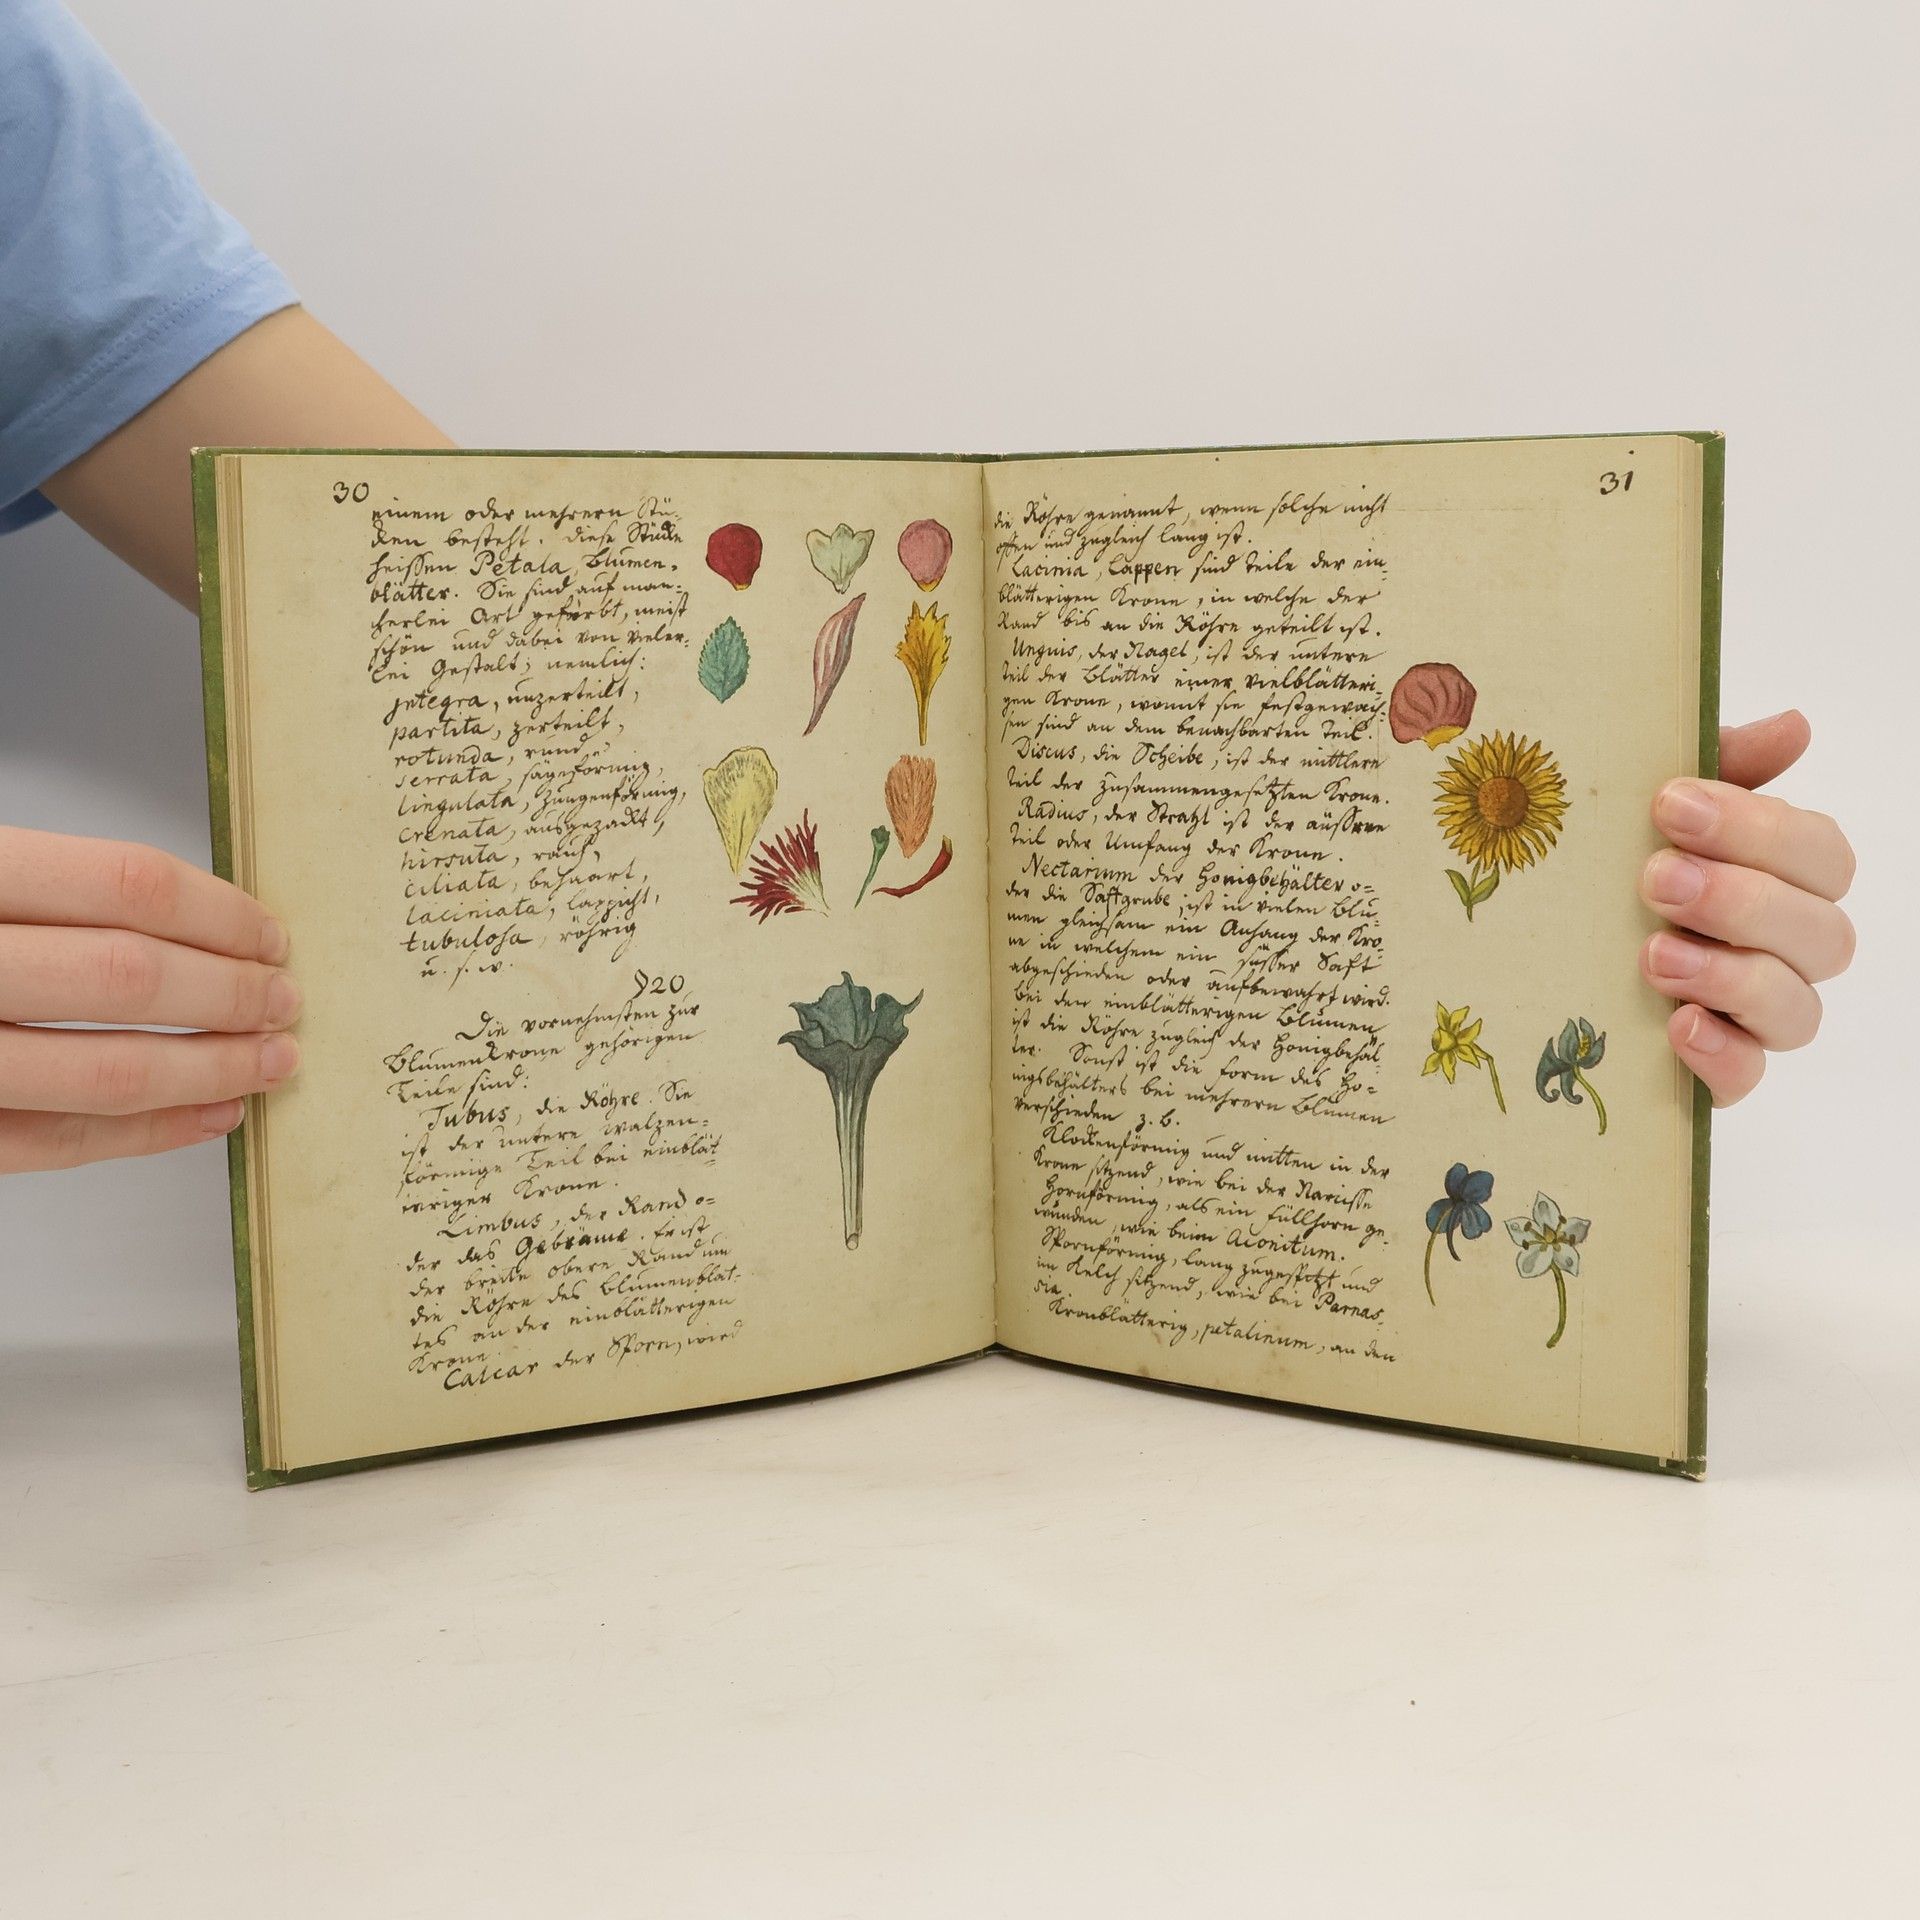 30
einem oder mehrern Stü-
cken besteht. Diese Stücke
heissen Petala, Blumen-
blätter. Sie sind auf man-
cherlei Art gefärbt, meist
schön und dabei von vieler-
lei Gestalt; nemlich:
jntegra, unzerteilt,
partita, zerteilt,
rotunda, rund,
serrata, sägeförmig,
lingulata, zungenförmig,
crenata, ausgezackt,
hirsuta, rauh,
ciliata, behaart,
laciniata, lappicht,
tubulosa, röhrig
u. s. w.
§20
Die vornehmsten zur
Blumenkrone gehörigen
Teile sind:
Tubus, die Röhre. Sie
ist der untere walzen-
förmige Teil bei einblät-
triger Krone.
Limbus, der Rand o-
der das Gebräme. Er ist
der breite obere Rand um
die Röhre des Blumenblat-
tes an der einblätterigen
Krone.
Calcar der Sporn, wird
31
die Röhre genannt, wenn solche nicht
offen und zugleich lang ist.
Lacinia, Lappen sind teile der ein-
blätterigen Krone, in welche der
Rand bis an die Röhre geteilt ist.
Unguis, der Nagel, ist der untere
teil der Blätter einer vielblätteri-
gen Krone, womit sie festgewach-
sen sind an dem benachbarten Teil.
Discus, die Scheibe, ist der mittlere
teil der zusammengesetzten Krone.
Radius, der Strahl ist der äussere
teil oder Umfang der Krone.
Nectarium der Honigbehälter o-
der die Saftgrube, ist in vielen Blu-
men gleichsam ein Anhang der Kro-
ne in welchem ein süsser Saft
abgeschieden oder aufbewahrt wird.
bei den einblätterigen Blumen
ist die Röhre zugleich der Honigbehäl-
ter. Sonst ist die form des Ho-
nigsbehälters bei mehrern Blumen
verschieden z. b.
Klockenförmig und mitten in der
Krone sitzend, wie bei der Narcisse
Hornförmig, als ein füllhorn ge-
wunden, wie beim Aconitum.
Spornförmig, lang zugespitzt und
im Kelch sitzend, wie bei Parnas-
sia.
Kronblätterig, petalinum, an den